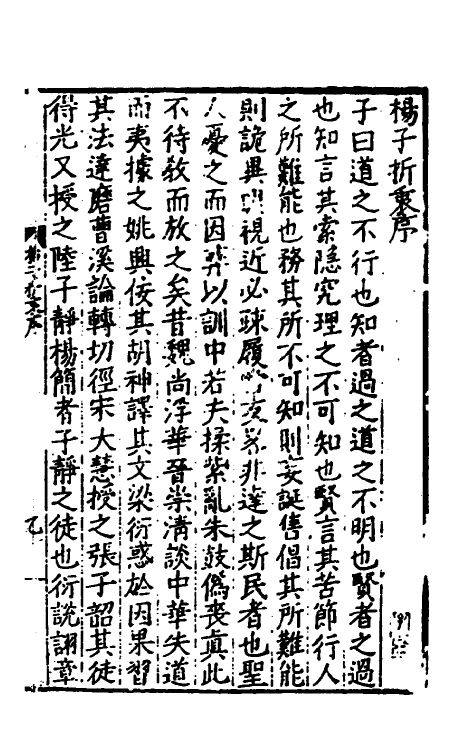 楊子折衷序
子曰道之不行也知者過之道之不明也賢者之過
也知言其索隱究理之不可知也賢言其苦節行人
之所難能也務其所不可知則妄誕售倡其所難能
則詭異視近必疎履非達之斯民者也聖
人憂之而因以訓中若夫揉紫亂朱鼓僞喪眞此
不待教而放之矣昔魏尚浮華晉崇清談中華失道
而夷據之姚興佞其胡神譯其文梁衍惑於因果習
其法達磨曹溪論轉切徑宋大慧授之張子韶其徒
得光又授之陸子靜楊簡者子靜之徒也衍說詡章